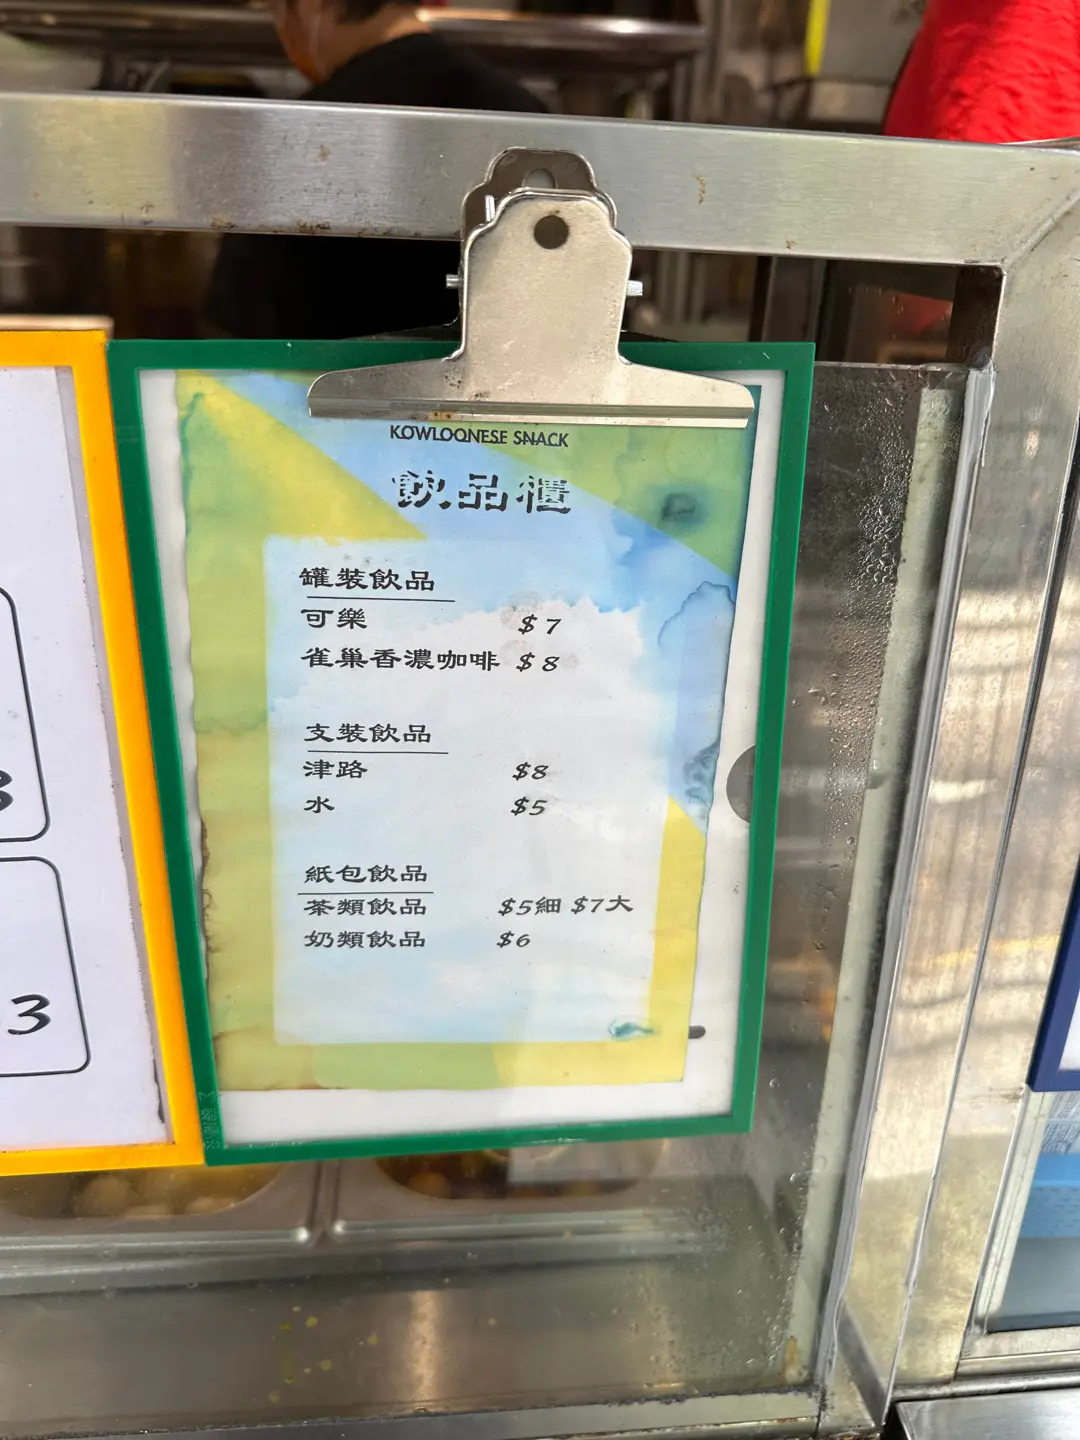 KOWLOONESE SNACK
飲品櫃
罐裝飲品
可樂 $7
雀巢香濃咖啡 $8
支裝飲品
津路 $8
水 $5
紙包飲品
茶類飲品 $5細 $7大
奶類飲品 $6
3